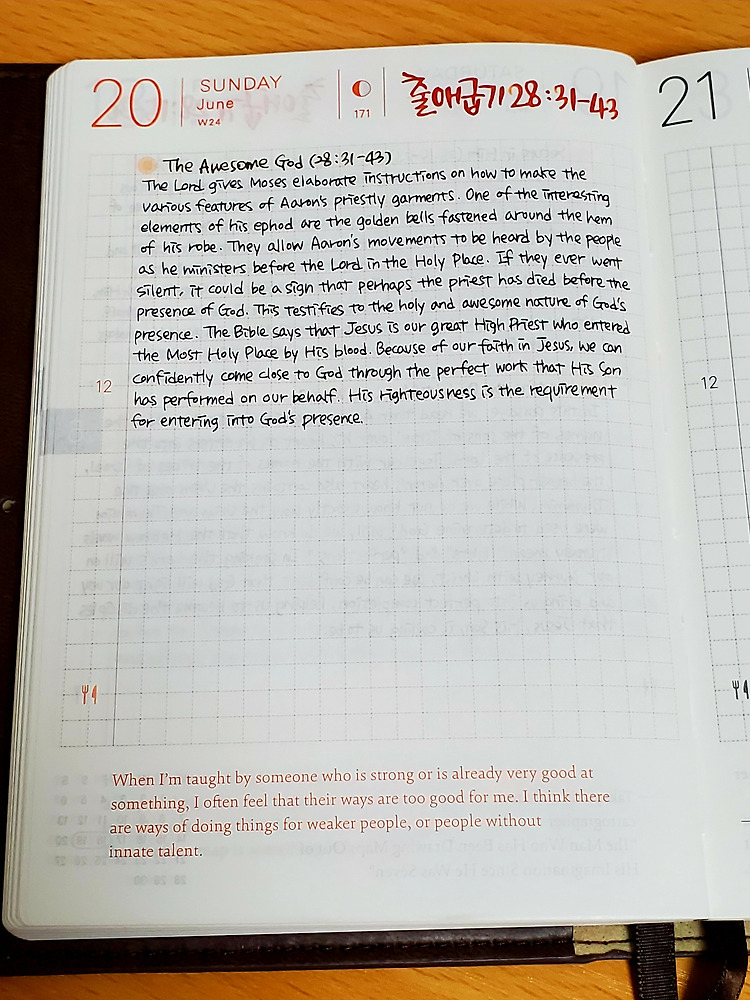 20
SUNDAY
June
W24
171
출애굽기 28:31-43
21
The Awesome God (28:31-43)
The Lord gives Moses elaborate instructions on how to make the
various features of Aaron's priestly garments. One of the interesting
elements of his ephod are the golden bells fastened around the hem
of his robe. They allow Aaron's movements to be heard by the people
as he ministers before the Lord in the Holy Place. If they ever went
silent, it could be a sign that perhaps the priest has died before the
presence of God. This testifies to the holy and awesome nature of God's
presence. The Bible says that Jesus is our great High Priest who entered
the Most Holy Place by His blood. Because of our faith in Jesus, we can
confidently come close to God through the perfect work that His Son
has performed on our behalf. His righteousness is the requirement
for entering into God's presence.
12
12
When I'm taught by someone who is strong or is already very good at
something, I often feel that their ways are too good for me. I think there
are ways of doing things for weaker people, or people without
innate talent.